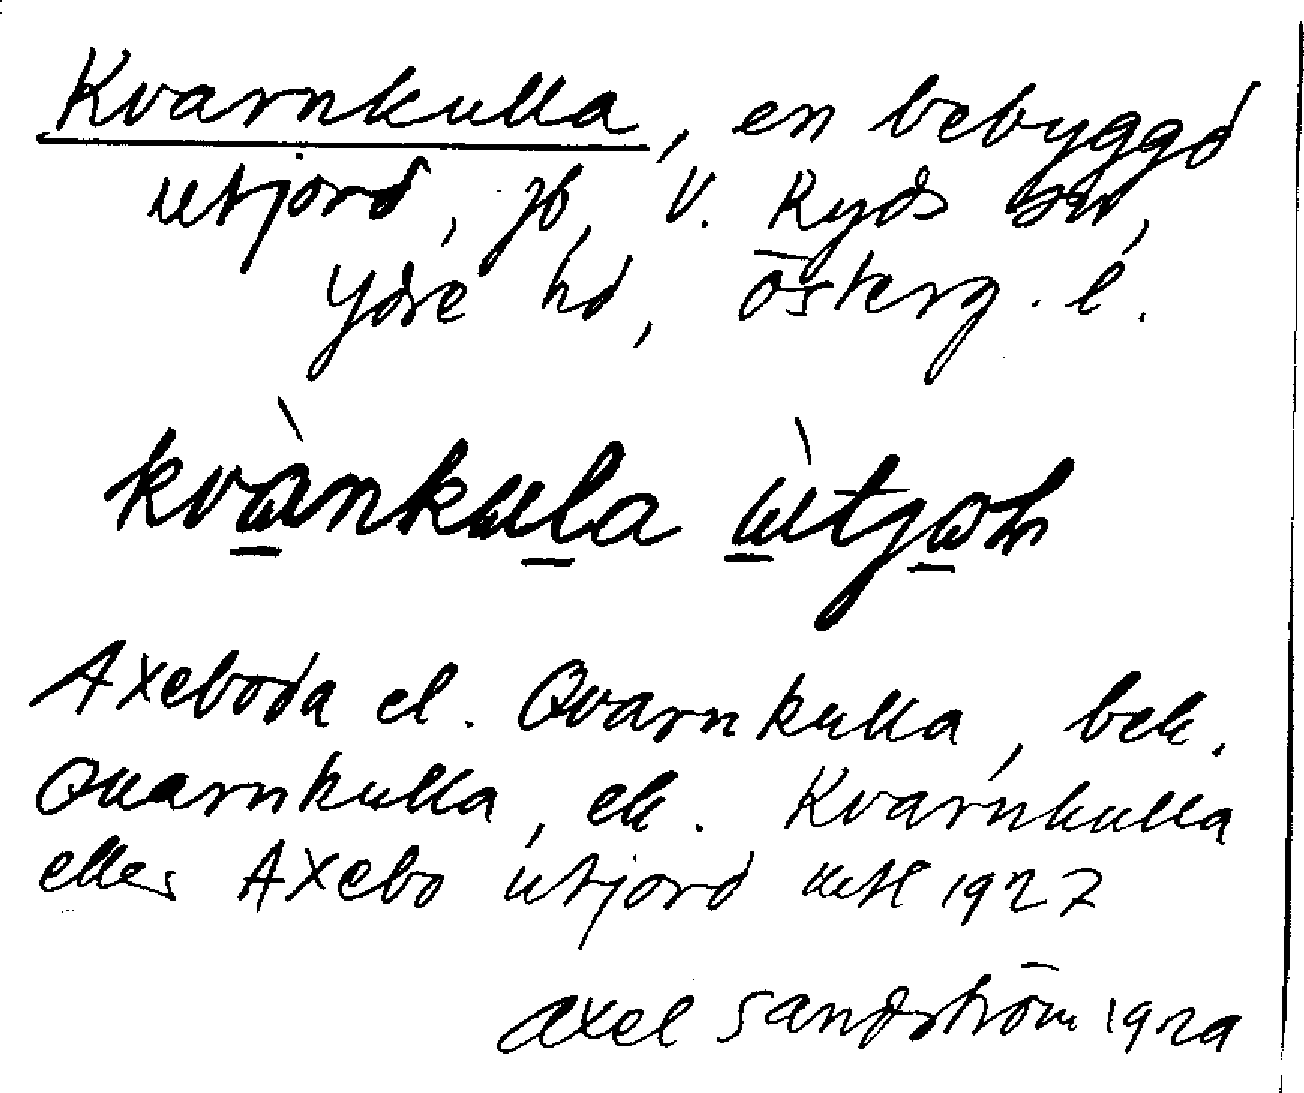 Kvarnkulla, en bebyggd
utjord, jb, V. Ryds sn,
Ydre hd, Österg. l.
kvànkula ùtjoh
Axeboda el. Qvarnkulla, bek.
Quarnkulla, ek. Kvarnkulla
eller Axebo utjord 1927
Axel Sandström 1929